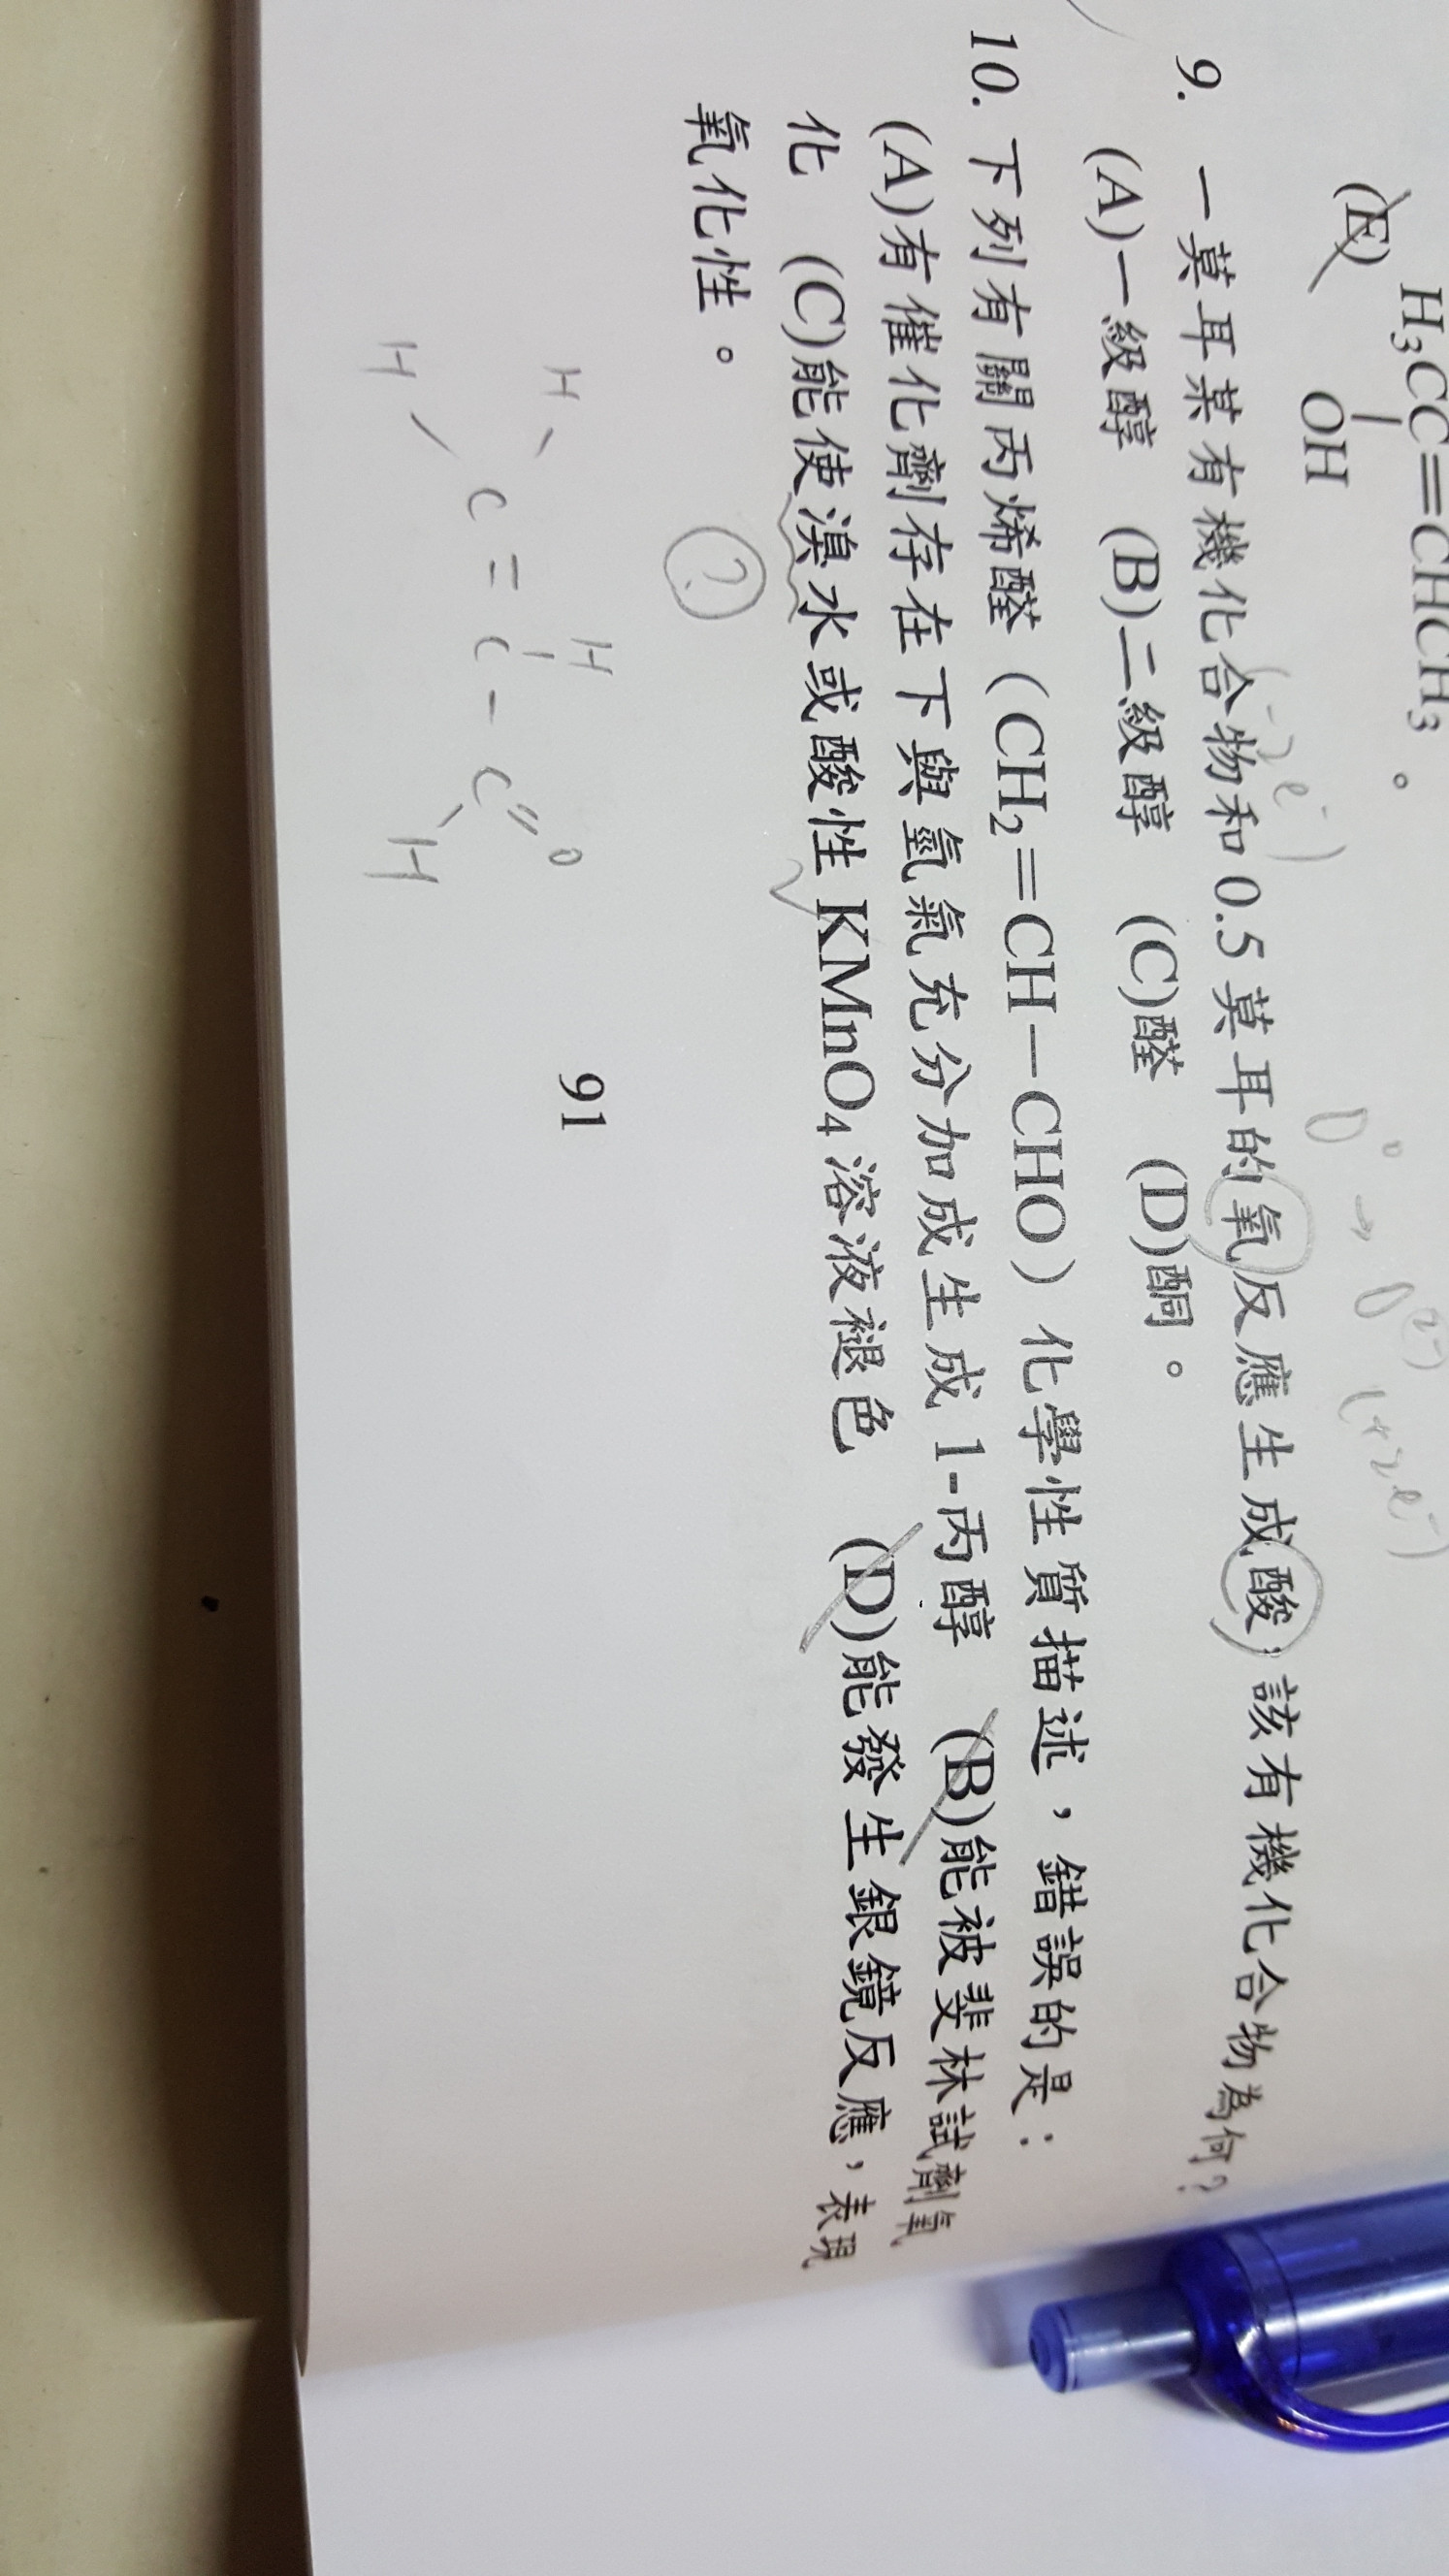 H₃CC=CHCH₃。
(E) OH
(-2e⁻) O⁰ → O²⁻ (+2e⁻)
9. 一莫耳某有機化合物和0.5莫耳的氧反應生成酸；該有機化合物為何？
(A)一級醇 (B)二級醇 (C)醛 (D)酮。
10. 下列有關丙烯醛（CH₂=CH－CHO）化學性質描述，錯誤的是：
(A)有催化劑存在下與氫氣充分加成生成1-丙醇 (B)能被斐林試劑氧
化 (C)能使溴水或酸性KMnO₄溶液褪色 (D)能發生銀鏡反應，表現
氧化性。
?
H H O
C = C - C
H H
91